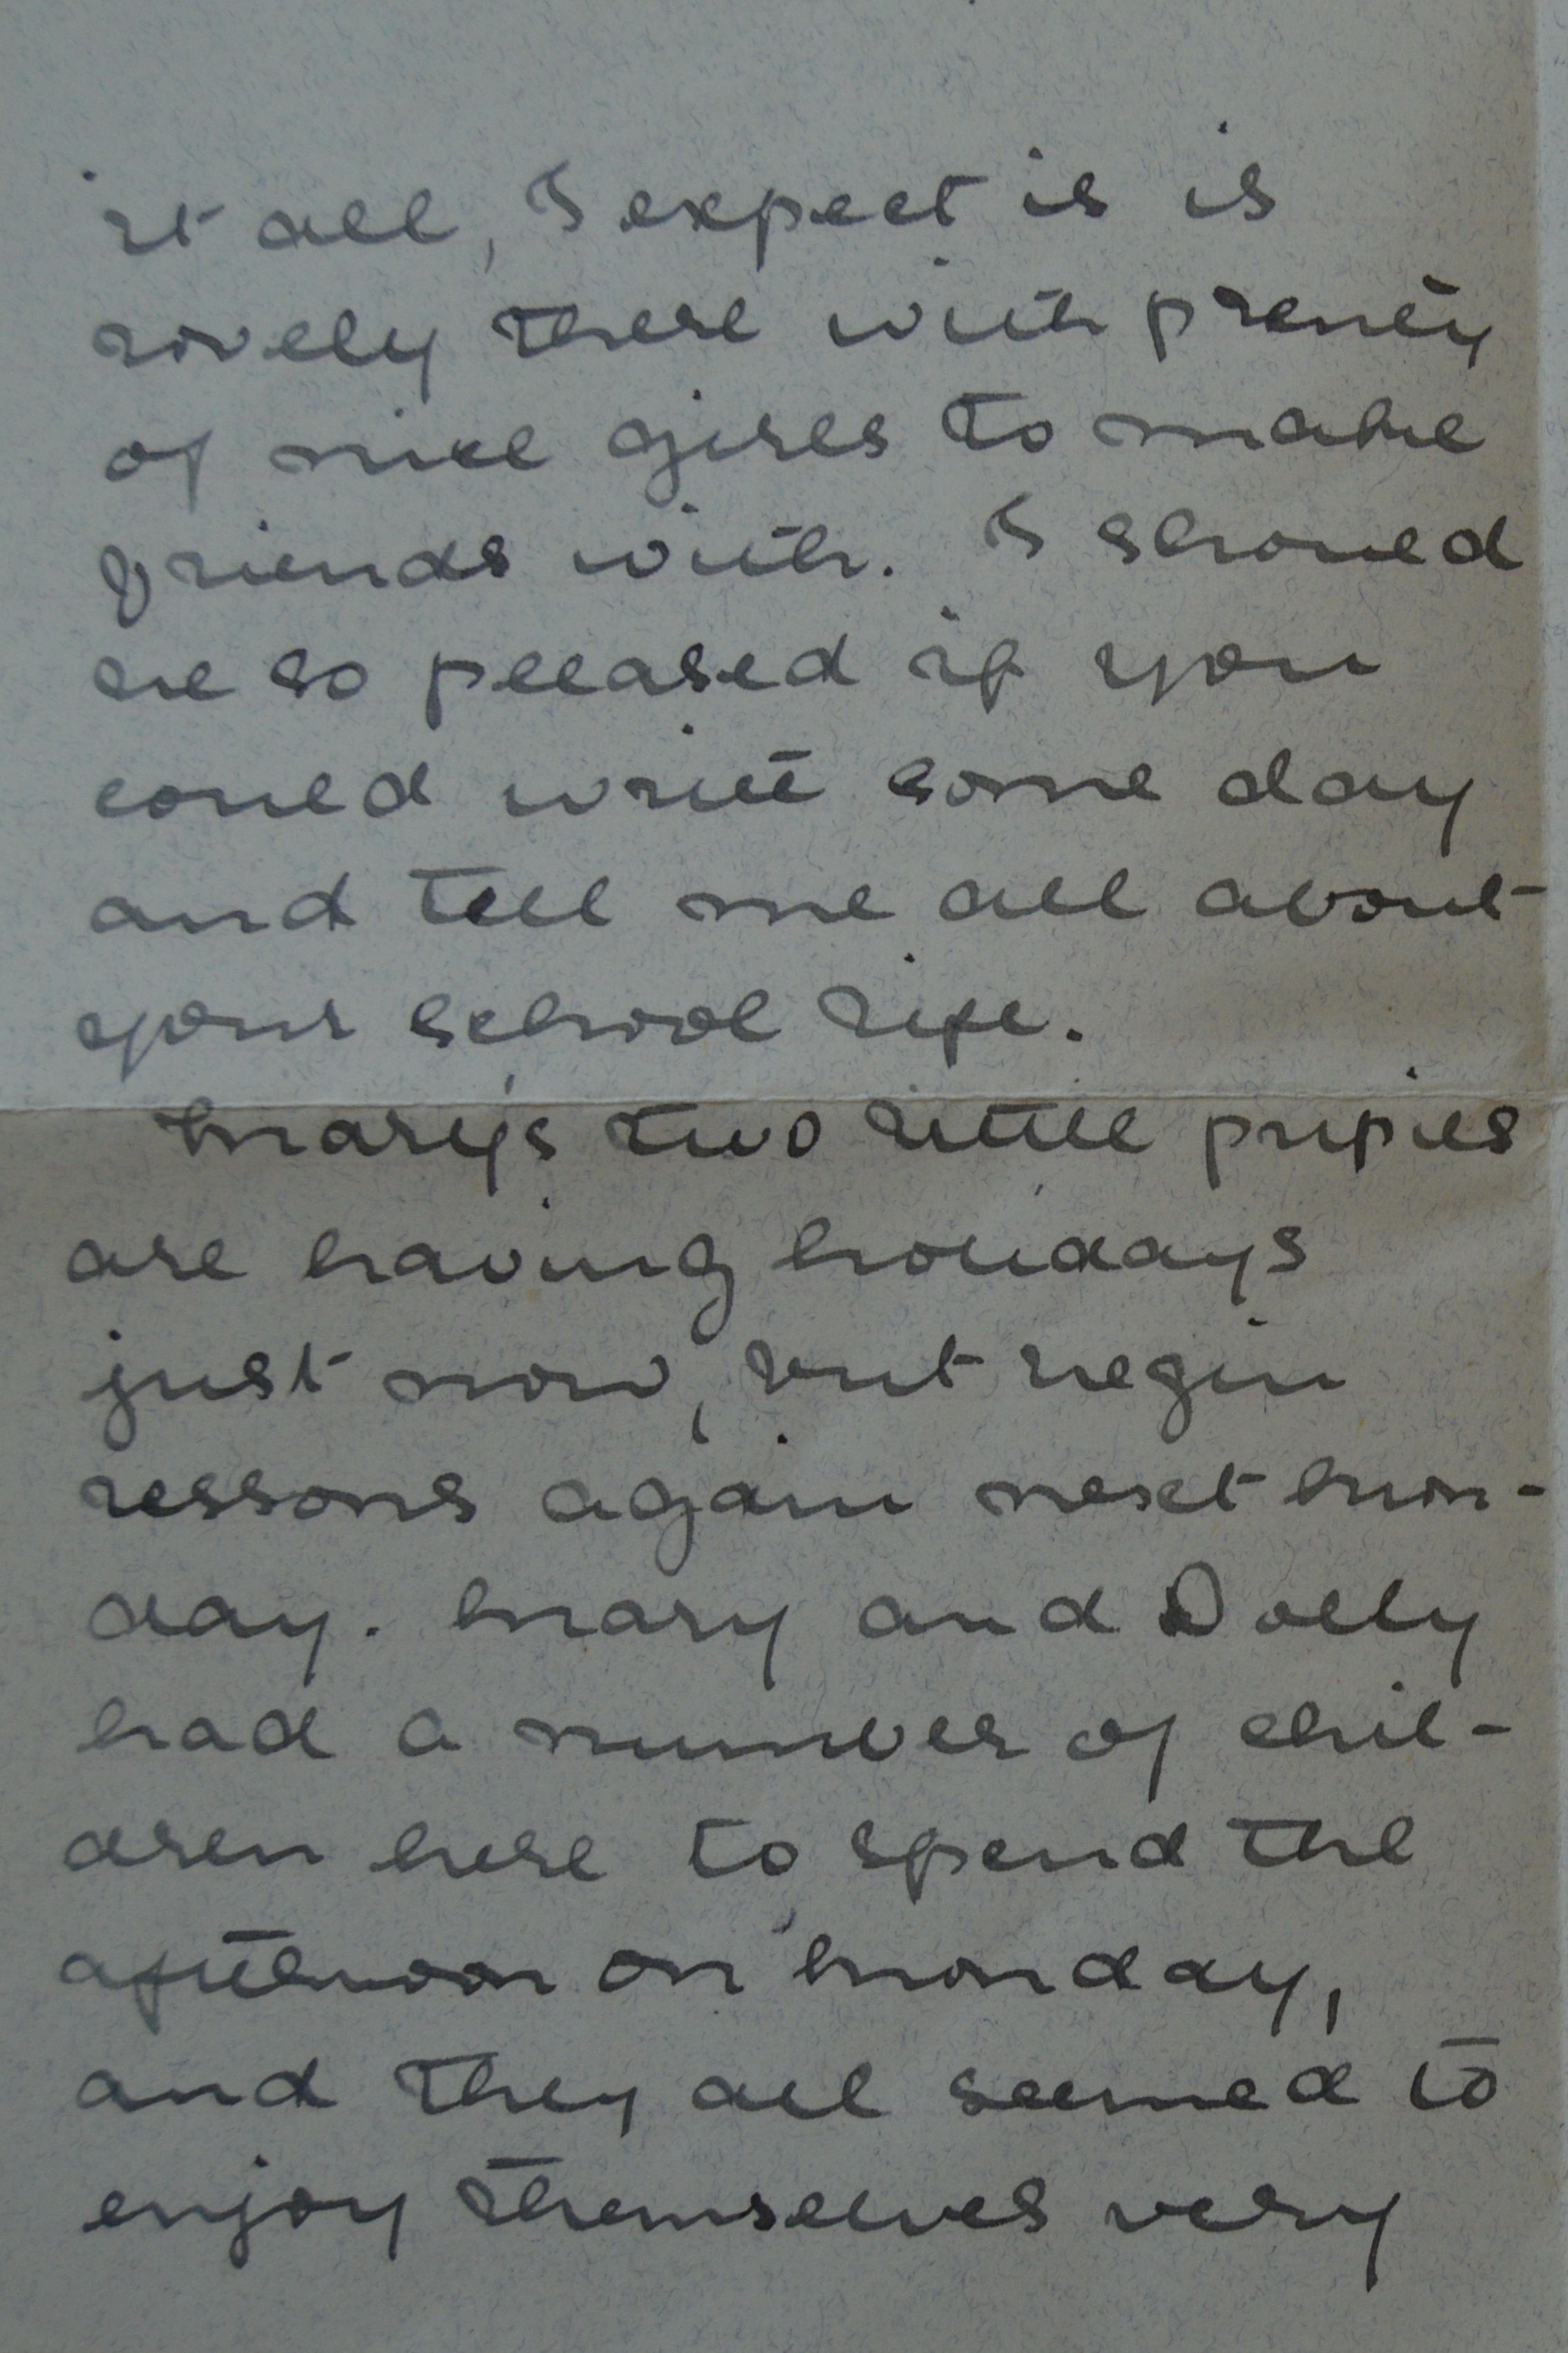 it all, I expect is is
lovely there with plenty
of nice girls to make
friends with. I should
be so pleased if you
could write some day
and tell me all about
your school life.
Mary's two little pupils
are having holidays
just now, but begin
lessons again next Mon-
day. Mary and Dolly
had a number of chil-
dren here to spend the
afternoon on Monday,
and they all seemed to
enjoy themselves very